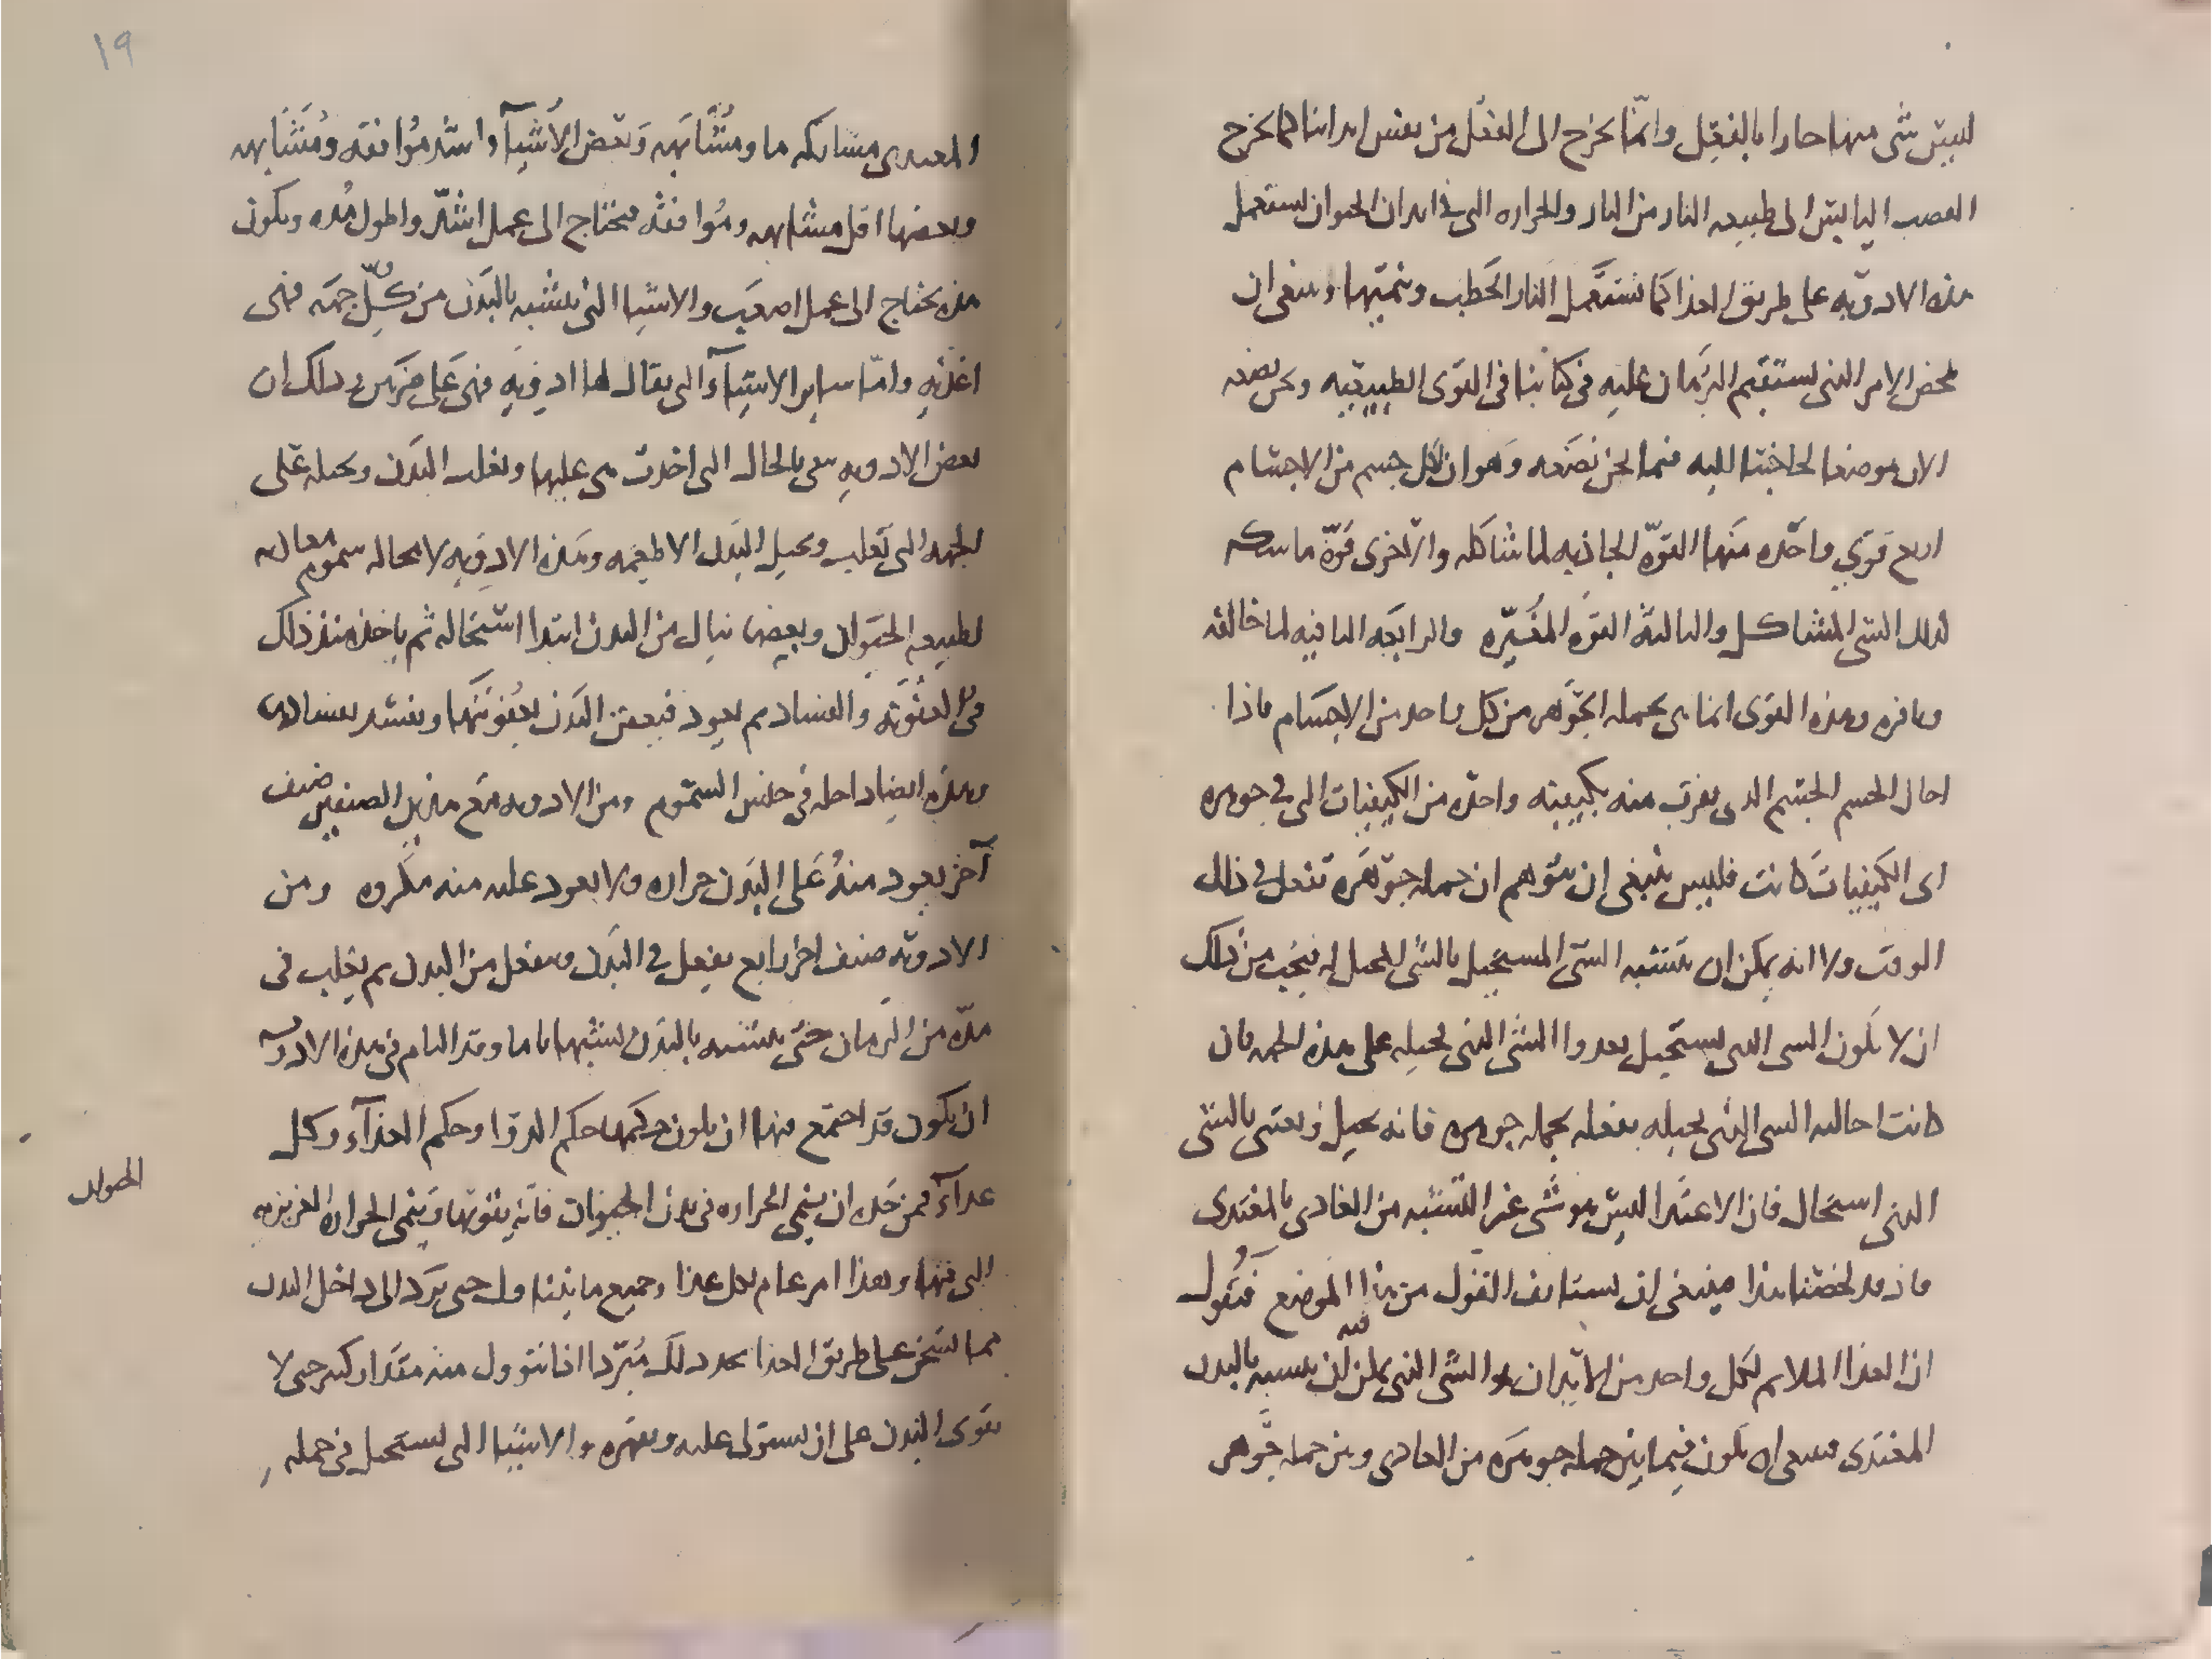 ليس شى منها حارا بالفعل وانما يخرج الى الفعل من نفس ابداننا كما يخرج
القصب اليابس الى طبيعه النار من النار والحراره التى فى ابدان الحيوان تستعمل
هذه الادويه على طريق الغذا كما تستعمل النار الحطب وتنميها وينبغى ان
نلخص الامر الذى يستقيم البرهان عليه فى كتابنا فى القوى الطبيعيه ونحن نضعه
الان موضعا لحاجتنا اليه فيما نحن نضعه وهو ان لكل جسم من الاجسام
اربع قوى واحده منها القوه الجاذبه لما شاكله والاخرى قوة ماسكه
لذلك الشى المشاكل والثالثة القوه المغيره والرابعه النافيه لما خالفه
ونافره وهذه القوى انما هى بجمله الجوهر من كل واحد من الاجسام فاذا
احال الجسم الجسم الذى يقرب منه بكيفيته واحده من الكيفيات التى فى جوهره
اى الكيفيات كانت فليس ينبغى ان نتوهم ان جمله جوهره تفعل فى ذلك
الوقت ولا انه يمكن ان يتشبه الشى المستحيل بالشى المحيل له فيجب من ذلك
ان لا يكون الشى الذى يستحيل يغدوا الشى الذى يحيله على هذه الجهه فان
كانت احالة الشى الذى يحيله بفعله بجمله جوهره فانه يحيل ويغتذى بالشى
الذى استحال فان الاغتذا ليس هو شى غير التشبه من الغاذى بالمغتذى
فاذ قد لخصنا هذا فينبغى ان نستانف القول من هذا الموضع فنقول
ان الغذا الملايم لكل واحد من الابدان هو الشى الذى يمكن ان يتشبه بالبدن
المغتذى فينبغى ان يكون فيما بين جمله جوهره من الغاذى وبين جمله جوهر
١٩
المغتذى مشاكله ما ومشابهه وبعض الاشيآ اشد موافقه ومشابهه
وبعضها اقل مشابهه وموافقه فيحتاج الى عمل اشد واطول مده ويكون
هذه يحتاج الى عمل اصعب والاشيا التى يتشبه بالبدن من كل جهه فهى
اغذيه واما ساير الاشيآ التى يقال لها ادويه فهى على ضربين وذلك ان
بعض الادويه يبقى بالحال التى اخذت هى عليها ويغلب البدن ويحيله على
الجهه التى تغلب ويحيل البدن الاطعمه وهذه الادويه لا محاله سموم مفاسده
لطبيعه الحيوان وبعضها ينال من البدن ابتدا استحاله ثم ياخذ منذ ذلك
فى العفونه والفساد ثم يعود فيعفن البدن بعفونتها ويفسد بفسادها
وهذه ايضا داخله فى جنس السموم ومن الادويه مع هذين الصنفين صنف
آخر يعود منه على البدن حراره ولا يعود عليه منه مكروه ومن
الادويه صنف اخر رابع يفعل فى البدن وينفعل من البدن ثم يغلب فى
مده من الزمان حتى يتشبه بالبدن تشبها تاما وقد التام فى هذه الادويه
ان يكون قد اجتمع فيها ان يكون حكمها حكم الدوا وحكم الغذآء وكل
غدآء فمن حده ان ينمى الحراره فى بدن الحيوان فانه يقويها وينمى الحراره الغريزيه
التى فيها وهذا امر عام لكل غذا وجميع ما يتناول حتى يرد الى داخل البدن
مما يسخن على طريق الغذا يحدد ذلك مبردا اذا تنوول منه مقدار كبير حتى لا
يقوى البدن على ان يستولى عليه ويقهره والاشيا التى تستحيل فى جمله